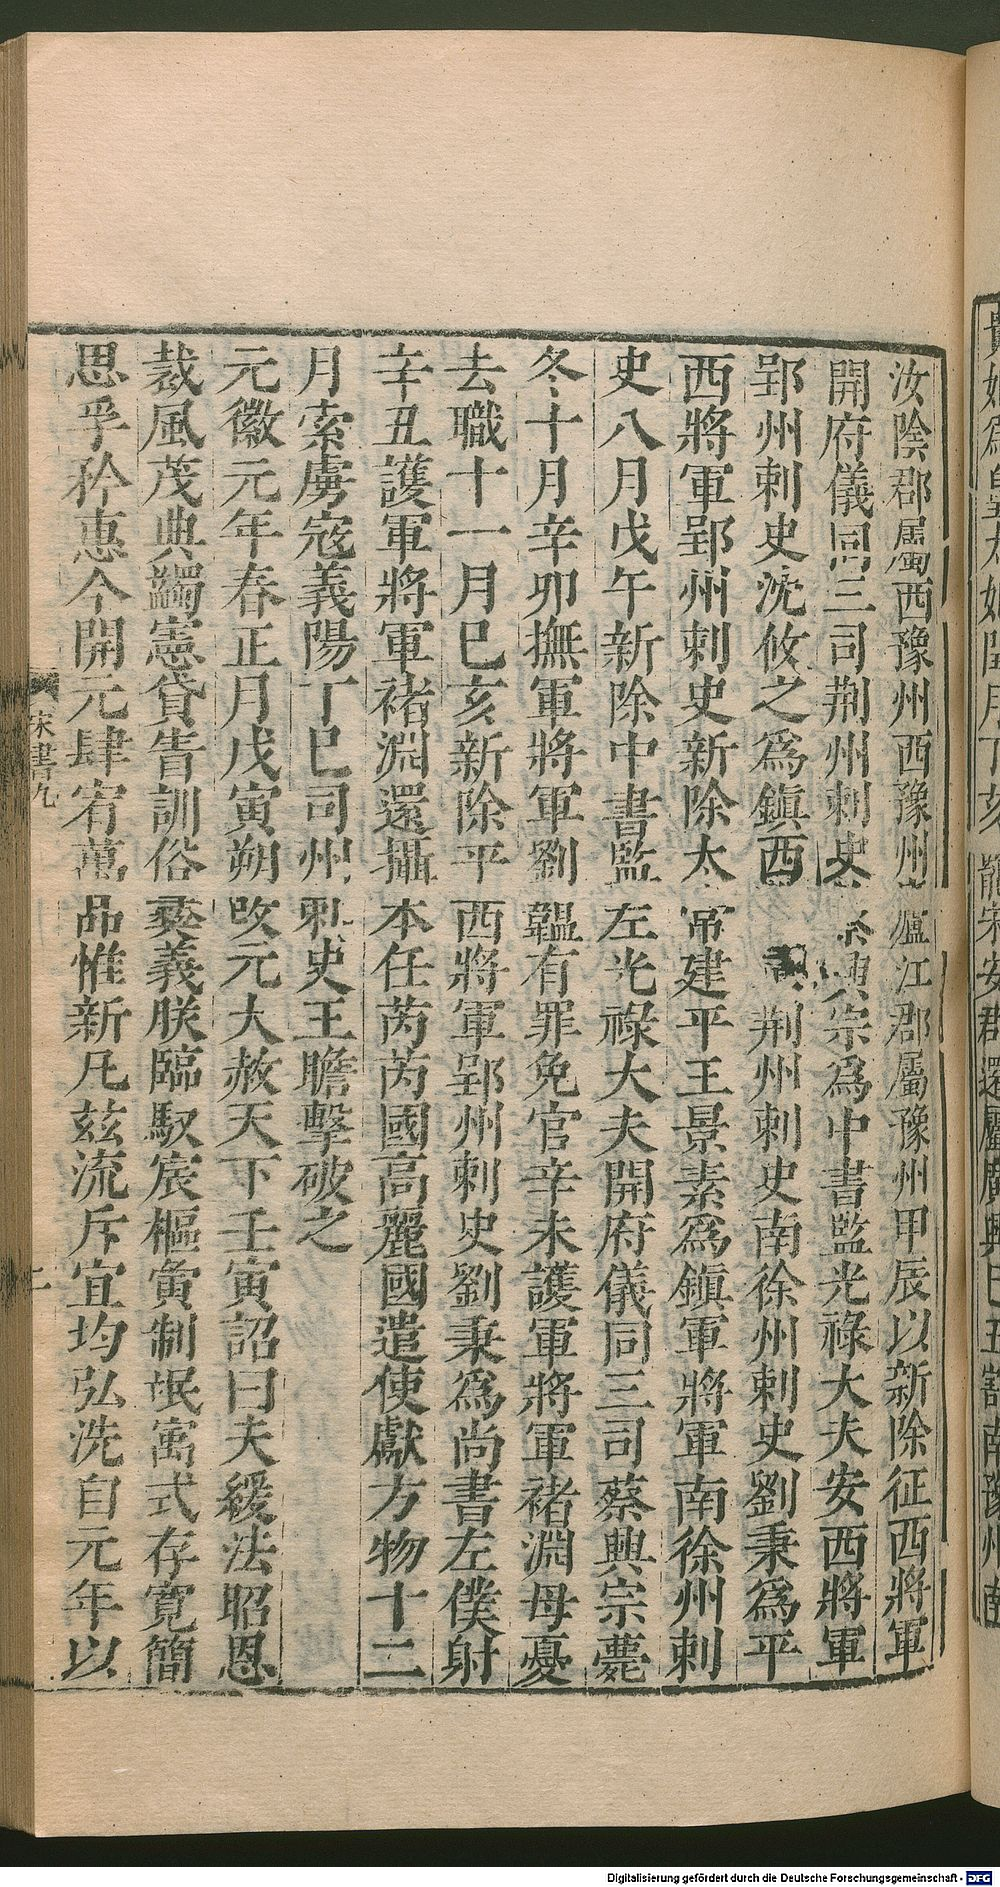 汝陰郡屬西豫州西豫州廬江郡屬豫州甲辰以新除征西將軍
開府儀同三司荆州刺史蔡興宗爲中書監光祿大夫安西將軍
郢州刺史沈攸之爲鎮西 荆州刺史南徐州刺史劉秉爲平
西將軍郢州刺史新除太常建平王景素爲鎮軍將軍南徐州刺
史八月戊午新除中書監左光祿大夫開府儀同三司蔡興宗薨
冬十月辛卯撫軍將軍劉韞有罪免官辛未護軍將軍褚淵母憂
去職十一月巳亥新除平西將軍郢州刺史劉秉爲尚書左僕射
辛丑護軍將軍褚淵還攝本任芮芮國高麗國遣使獻方物十二
月索虜寇義陽丁巳司州刺史王瞻擊破之
元徽元年春正月戊寅朔改元大赦天下壬寅詔曰夫緩法昭恩
裁風茂典蠲憲貸眚訓俗彛義朕臨馭宸樞夤制氓寓式存寬簡
思孚矜惠今開元肆宥萬品惟新凡茲流斥宜均弘洗自元年以
宋書九
二
Digitalisierung gefördert durch die Deutsche Forschungsgemeinschaft - DFG